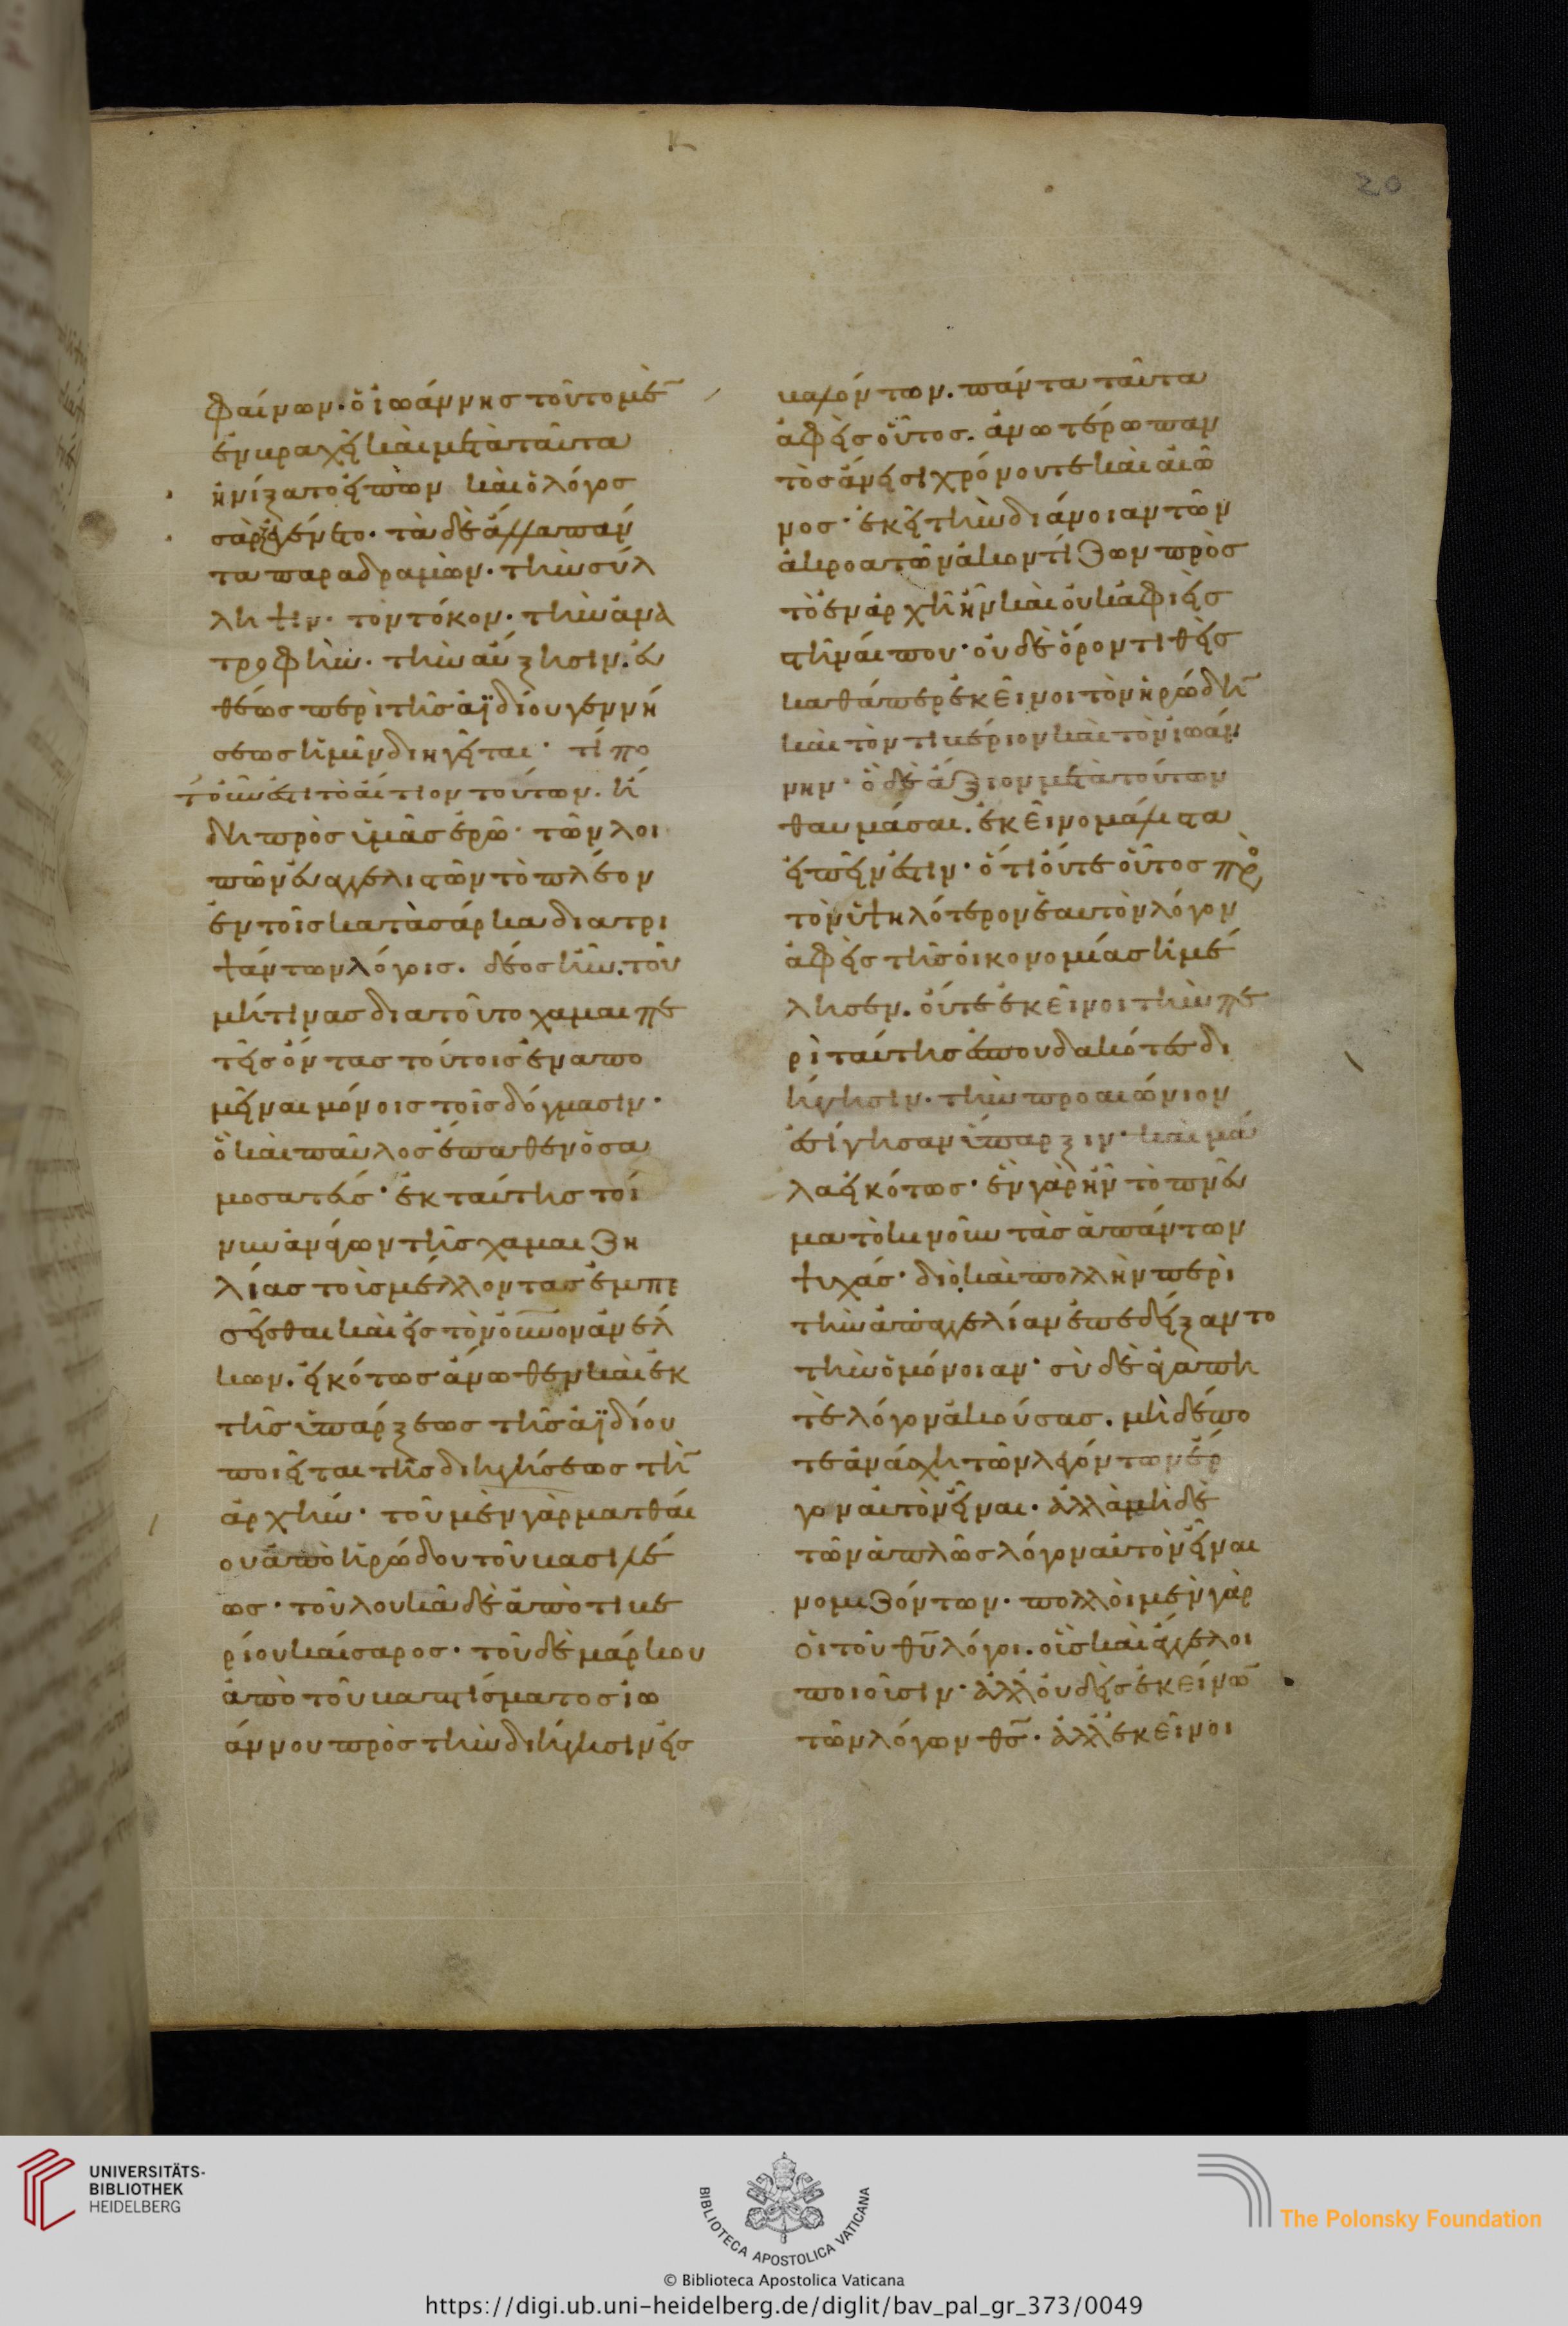 κ
20
φαίνων· ὁ ἰωάννης τοῦτο μὲ̄
ἐν βραχεῖ καὶ μετὰ ταῦτα
ἠνίξατο εἰπὼν καὶ ὁ λόγος
σὰρξ ἐγένετο· τὰ δὲ ἄλλα πάν
τα παραδραμὼν· τὴν σύλ
ληψιν· τὸν τόκον· τὴν ἀνα
τροφὴν· τὴν αὔξησιν· εὐ
θέως περὶ τῆς ἀϊδίου γεννή
σεως ἡμῖν διηγεῖται· τί πο
τ' οὖν ἐστι τὸ αἴτιον τούτων· ἤ
δη πρὸς ὑμᾶς ἐρῶ· τῶν λοι
πῶν εὐαγγελιστῶν τὸ πλέον
ἐν τοῖς κατὰ σάρκα διατρι
ψάντων λόγοις· δέος ἦν· τοῦ
μή τινας διὰ τοῦτο χαμαιπε
τεῖς ὄντας τούτοις ἐναπο
μεῖναι μόνοις τοῖς δόγμασιν·
ὃ καὶ παῦλος ἔπαθεν ὁ σα
μοσατεύς· ἐκ ταύτης τοί
νυν ἀνάγων τῆς χαμαιζη
λίας τοὺς μέλλοντας ἐμπε
σεῖσθαι καὶ εἰς τὸν οὐνον ἀνέλ
κων· εἰκότως ἄνωθεν καὶ ἐκ
τῆς ὑπάρξεως τῆς ἀϊδίου
ποιεῖται τῆς διηγήσεως τὴ̄
ἀρχήν· τοῦ μὲν γὰρ ματθαί
ου ἀπὸ ἡρώδου τοῦ βασιλέ
ως· τοῦ λουκᾶ δὲ ἀπὸ τιβε
ρίου καίσαρος· τοῦ δὲ μάρκου
ἀπὸ τοῦ βαπτίσματος ἰω
άννου πρὸς τὴν διήγησιν εἰσ
βαλόντων· πάντα ταῦτα
ἀφεὶς οὗτος· ἀνωτέρω παν
τὸς ἄνεισι χρόνου τὲ καὶ αἰῶ
νος· ἐκεῖ τὴν διάνοιαν τῶν
ἀκροατῶν ἀκοντίζων πρὸς
τὸ ἐν ἀρχῆ ἦν καὶ οὐκ ἀφιεὶς
στῆναί που· οὐδὲ ὅρον τιθεὶς
καθάπερ ἐκεῖνοι τὸν ἡρώδη̄
καὶ τὸν τιβέριον καὶ τὸν ἰωάν
νην· ὃ δὲ ἄξιον μετὰ τούτων
θαυμάσαι· ἐκεῖνο μάλιστα
εἰπεῖν ἐστιν· ὅτι οὔτε οὗτος πρὸς
τὸν ὑψηλότερον ἑαυτὸν λόγον
ἀφεὶς τῆς οἰκονομίας ἠμέ
λησεν· οὔτε ἐκεῖνοι τὴν πε
ρὶ ταύτης ἐσπουδακότες δι
ήγησιν· τὴν προαιώνιον
ἐσίγησαν ὕπαρξιν· καὶ μά
λα εἰκότως· ἓν γὰρ ἦν τὸ πνεῦ
μα τὸ κινοῦν τὰς ἁπάντων
ψυχάς· διὸ καὶ πολλὴν περὶ
τὴν ἀπαγγελίαν ἐπεδείξαντο
τὴν ὁμόνοιαν· σὺ δὲ ἀγαπη
τὲ λόγον ἀκούσας· μηδέπο
τε ἀνάσχη τῶν λεγόντων ἔρ
γον αὐτὸν εἶναι· ἀλλὰ μηδὲ
τῶν ἁπλῶς λόγον αὐτὸν εἶναι
νομιζόντων· πολλοὶ μὲν γὰρ
οἱ τοῦ θῦ λόγοι· οἷς καὶ ἄγγελοι
ποιοῦσιν· ἀλλ' οὐδεὶς ἐκείνω̄
τῶν λόγων θς̄· ἀλλ' ἐκεῖνοι
UNIVERSITÄTS-
BIBLIOTHEK
HEIDELBERG
BIBLIOTECA APOSTOLICA VATICANA
The Polonsky Foundation
© Biblioteca Apostolica Vaticana
https://digi.ub.uni-heidelberg.de/diglit/bav_pal_gr_373/0049